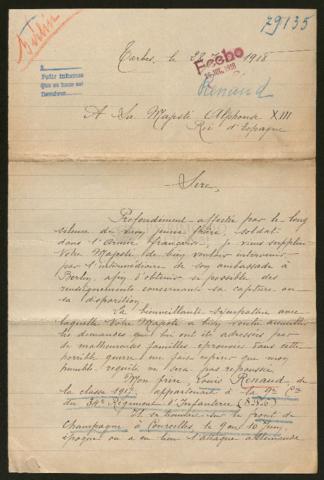 Berlin
79135
Tarbes, le 1918
Fecho
Renaud
Pedir informes
A Sa Majesté Alphonse XIII
Roi d'Espagne
Sire,
Profondément affectée par le long
silence de mon jeune frère, soldat
dans l'armée française, je viens supplier
Votre Majesté de bien vouloir intervenir
par l'intermédiaire de son ambassade à
Berlin, afin d'obtenir si possible des
renseignements concernant sa capture ou
sa disparition.
La bienveillante sympathie avec
laquelle Votre Majesté a bien voulu accueillir
les demandes qui lui ont été adressées par
de malheureuses familles éprouvées dans cette
horrible guerre me fait espérer que mon
humble requête ne sera pas repoussée.
Mon frère, Louis Renaud, de
la classe 1917, appartenait à la Cie
du 34e Régiment d'Infanterie
Il se trouvait sur le front de
Champagne, à Courcelles, le 9 ou 10 juin,
époque où a eu lieu l'attaque allemande